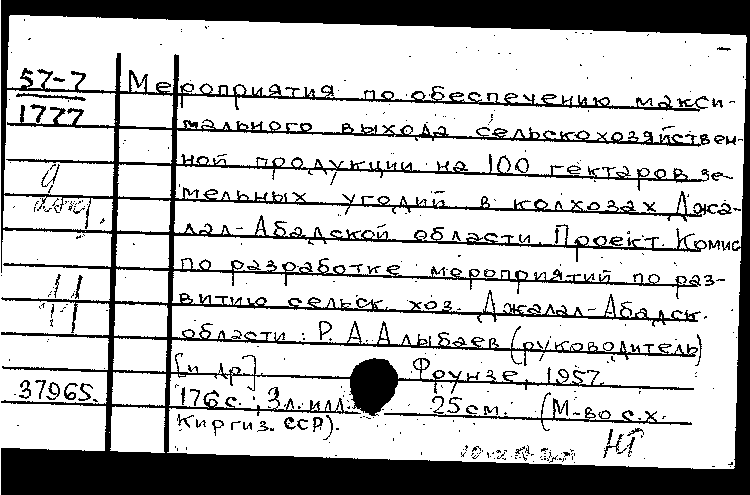 57-7
1777
Мероприятия по обеспечению макси-
мального выхода сельскохозяйствен-
ной продукции на 100 гектаров зе-
мельных угодий в колхозах Джа-
лал-Абадской области. Проект. Комис
по разработке мероприятий по раз-
витию сельск. хоз. Джалал-Абадск.
области: Р. А. Алыбаев (руководитель)
[и др]. Фрунзе, 1957.
37965.
176 с.; 3 л. илл. 25 см. (М-во с.х.
Киргиз. ССР).
НТ